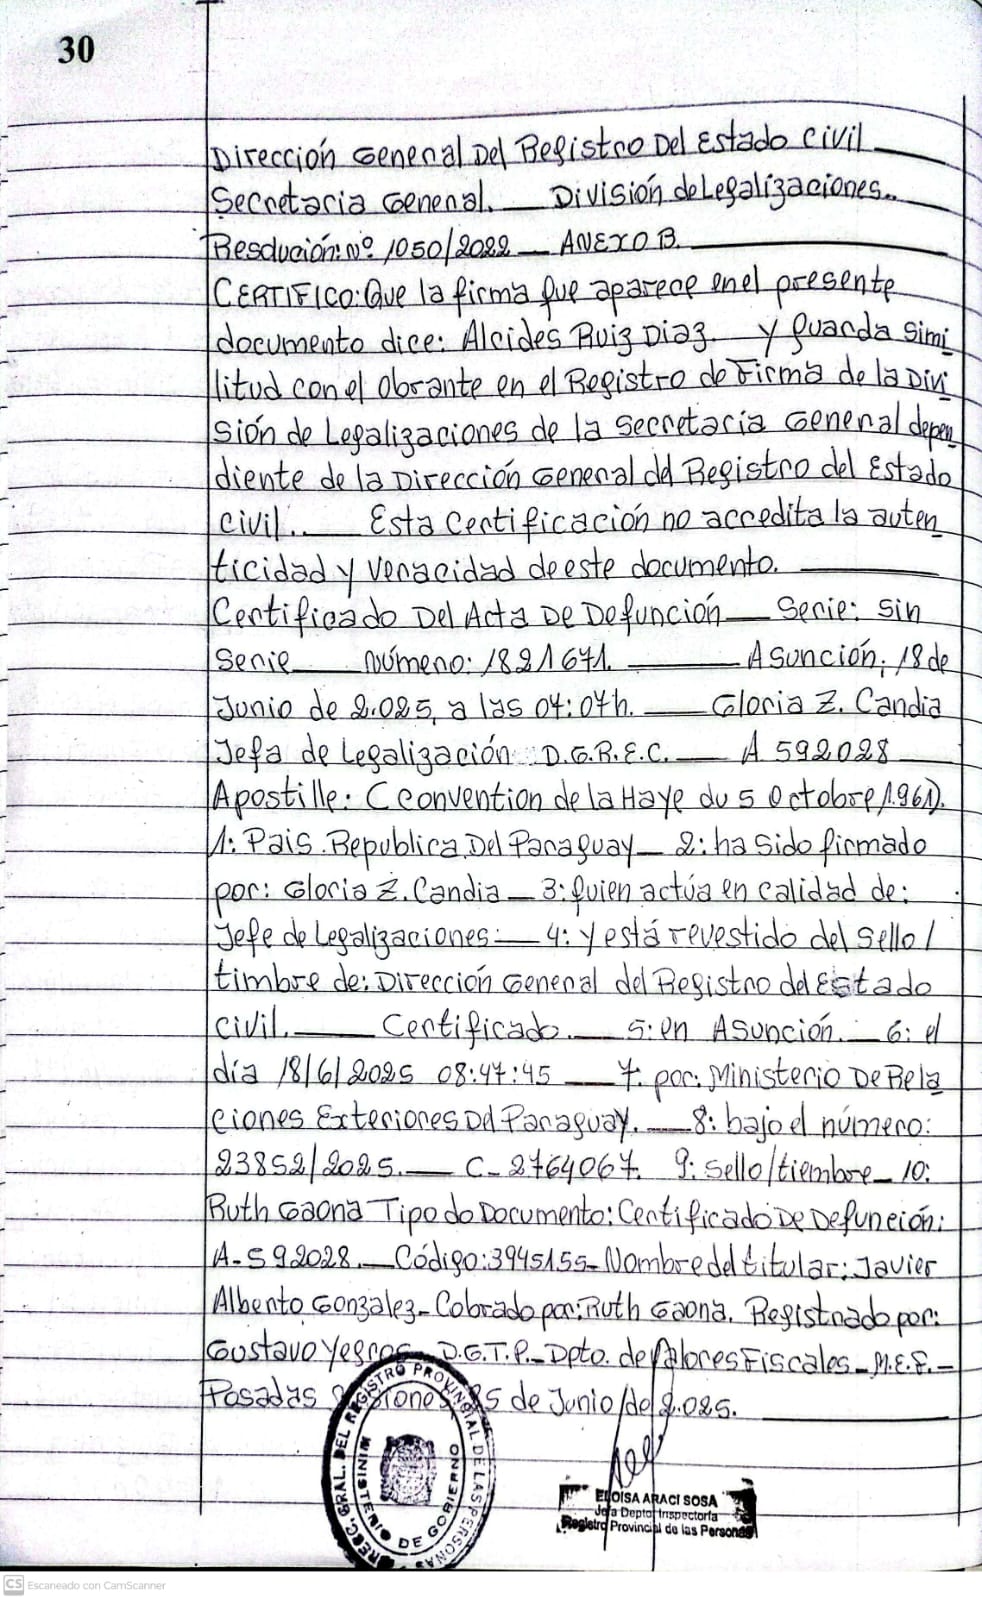 30
Dirección General Del Registro Del Estado Civil
Secretaria General. División de Legalizaciones.
Resolución: Nº 1050/2022 — ANEXO B.
CERTIFICO: Que la firma que aparece en el presente
documento dice: Alcides Ruiz Diaz. y guarda simi
litud con el obrante en el Registro de Firma de la Divi
sión de Legalizaciones de la Secretaria General depen
diente de la Dirección General del Registro del Estado
civil. Esta Certificación no accredita la auten
ticidad y veracidad de este documento.
Certificado Del Acta De Defunción — Serie: sin
Serie — número: 1821671. — Asunción, 18 de
Junio de 2.025, a las 07:07h. — Gloria Z. Candia
Jefa de Legalización D.G.R.E.C. — A 592028
Apostille: C Convention de la Haye du 5 Octobre 1.961).
1: Pais. Republica Del Paraguay — 2: ha sido firmado
por: Gloria Z. Candia — 3: quien actúa en calidad de:
Jefe de Legalizaciones: — 4: y está revestido del sello /
timbre de: Dirección General del Registro del Estado
civil. — Certificado. — 5: en Asunción. — 6: el
día 18/6/2025 08:47:45 — 7. por: Ministerio De Rela
ciones Exteriores Del Paraguay. — 8: bajo el número:
23852/2025. — C-2764067. 9: sello/tiembre — 10:
Ruth Gaona Tipo do Documento: Certificado De Defunción:
A-592028. — Código: 3945155 - Nombre del titular: Javier
Alberto Gonzalez - Cobrado por: Ruth Gaona. Registrado por:
Gustavo Yegros D.G.T.P. - Dpto. de Valores Fiscales - M.E.F. -
Posadas Misiones 25 de Junio del 2.025.
REG. GRAL. DEL REGISTRO PROVINCIAL DE LAS PERSONAS
MINISTERIO DE GOBIERNO
ELOISA ARACI SOSA
Jefa Depto. Inspectoría
Registro Provincial de las Personas
CS Escaneado con CamScanner